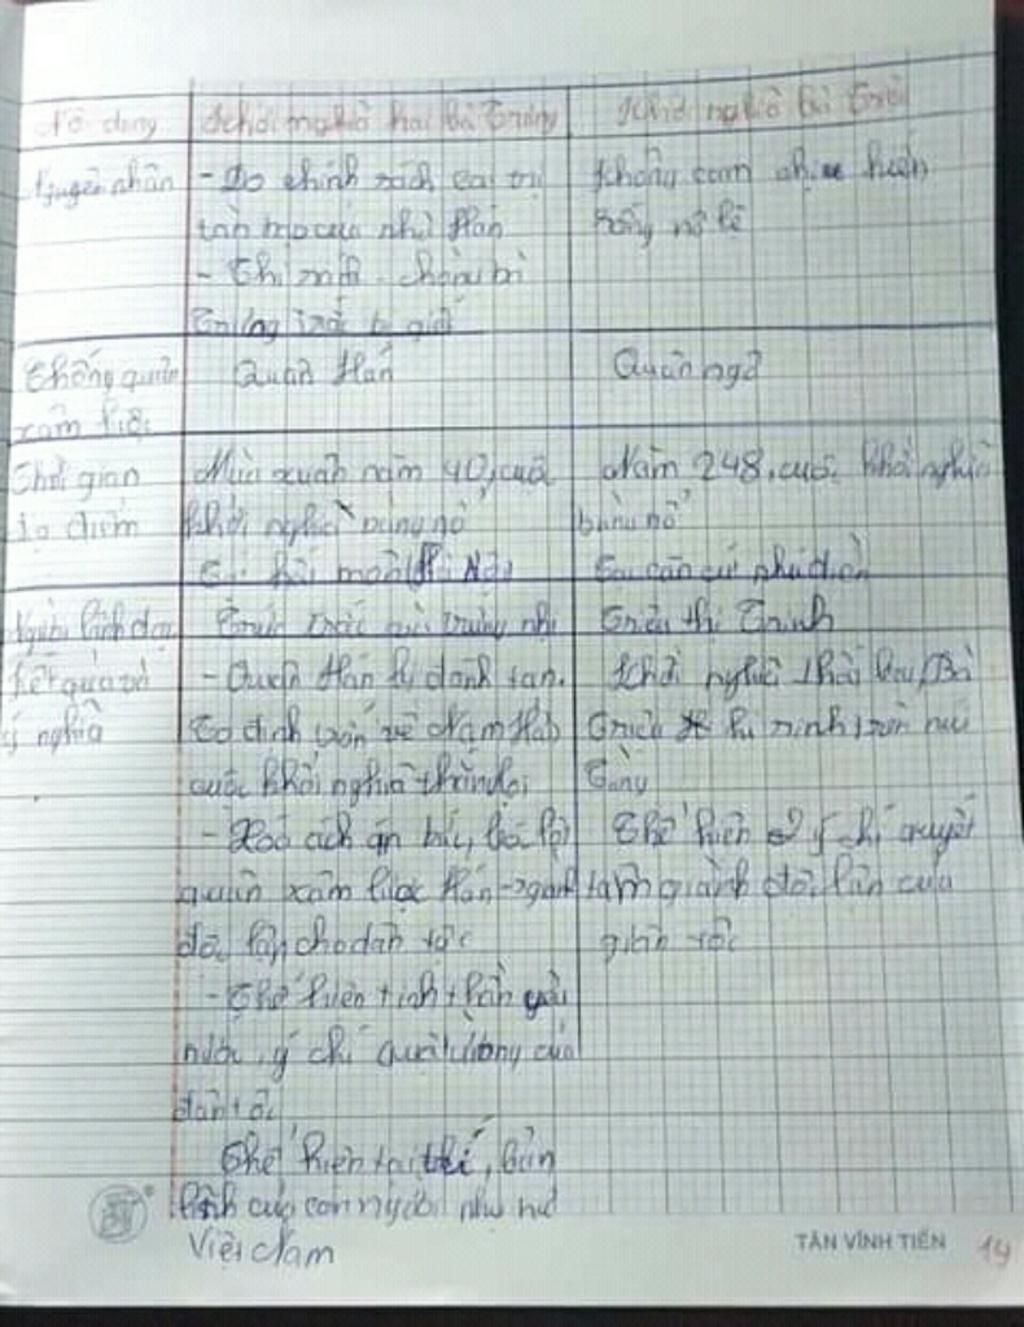 Nội dung
Khởi nghĩa hai Bà Trưng
Khởi nghĩa Bà Triệu
Nguyên nhân
- Do chính sách cai trị
tàn bạo của nhà Hán
- Thi chồng bà
Trưng Trắc bị giết
Không cam chịu
sống nô lệ
Chống quân
xâm lược
Quân Hán
Quân ngô
Thời gian
địa điểm
Mùa xuân năm 40, cuộc
khởi nghĩa bùng nổ
hát môn (Hà Nội)
Năm 248, cuộc khởi nghĩa
bùng nổ
căn cứ phú điền
Người lãnh đạo
Trưng Trắc và trưng nhị
Triệu thị Trinh
Kết quả và
ý nghĩa
- Quân Hán bị đánh tan.
Tô định trốn về Nam Hải
cuộc khởi nghĩa thành
- Xoá ách bức, bóc lột
quân xâm lược Hán
độc lập cho dân tộc
- Thể hiện tinh thần yêu
nước, ý chí quật cường của
dân tộc
Thể hiện tài trí, bản
lĩnh của con người phụ nữ
Việt Nam
Khởi nghĩa thất bại, Bà
Triệu hi sinh trên núi
Tùng
Thể hiện ý chí quyết
tâm giành độc lập của
dân tộc
TÂN VĨNH TIẾN
14